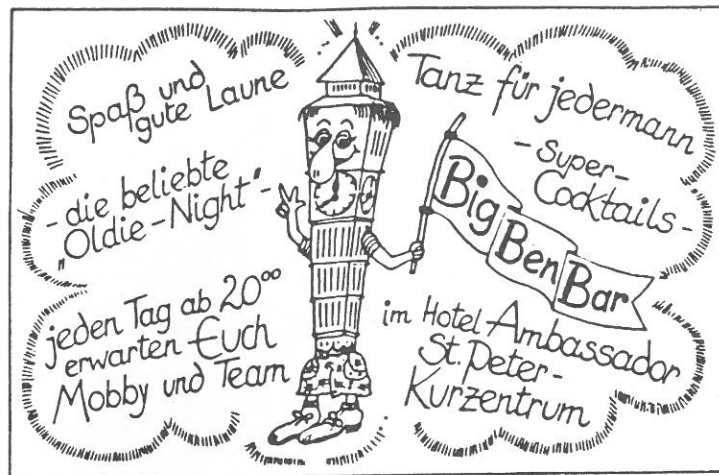 Spaß und
gute Laune
- die beliebte
„Oldie-Night“ -
jeden Tag ab 20⁰⁰
erwarten Euch
Mobby und Team
Tanz für jedermann
- Super-
Cocktails -
Big
Ben
Bar
im Hotel Ambassador
St. Peter-
Kurzentrum